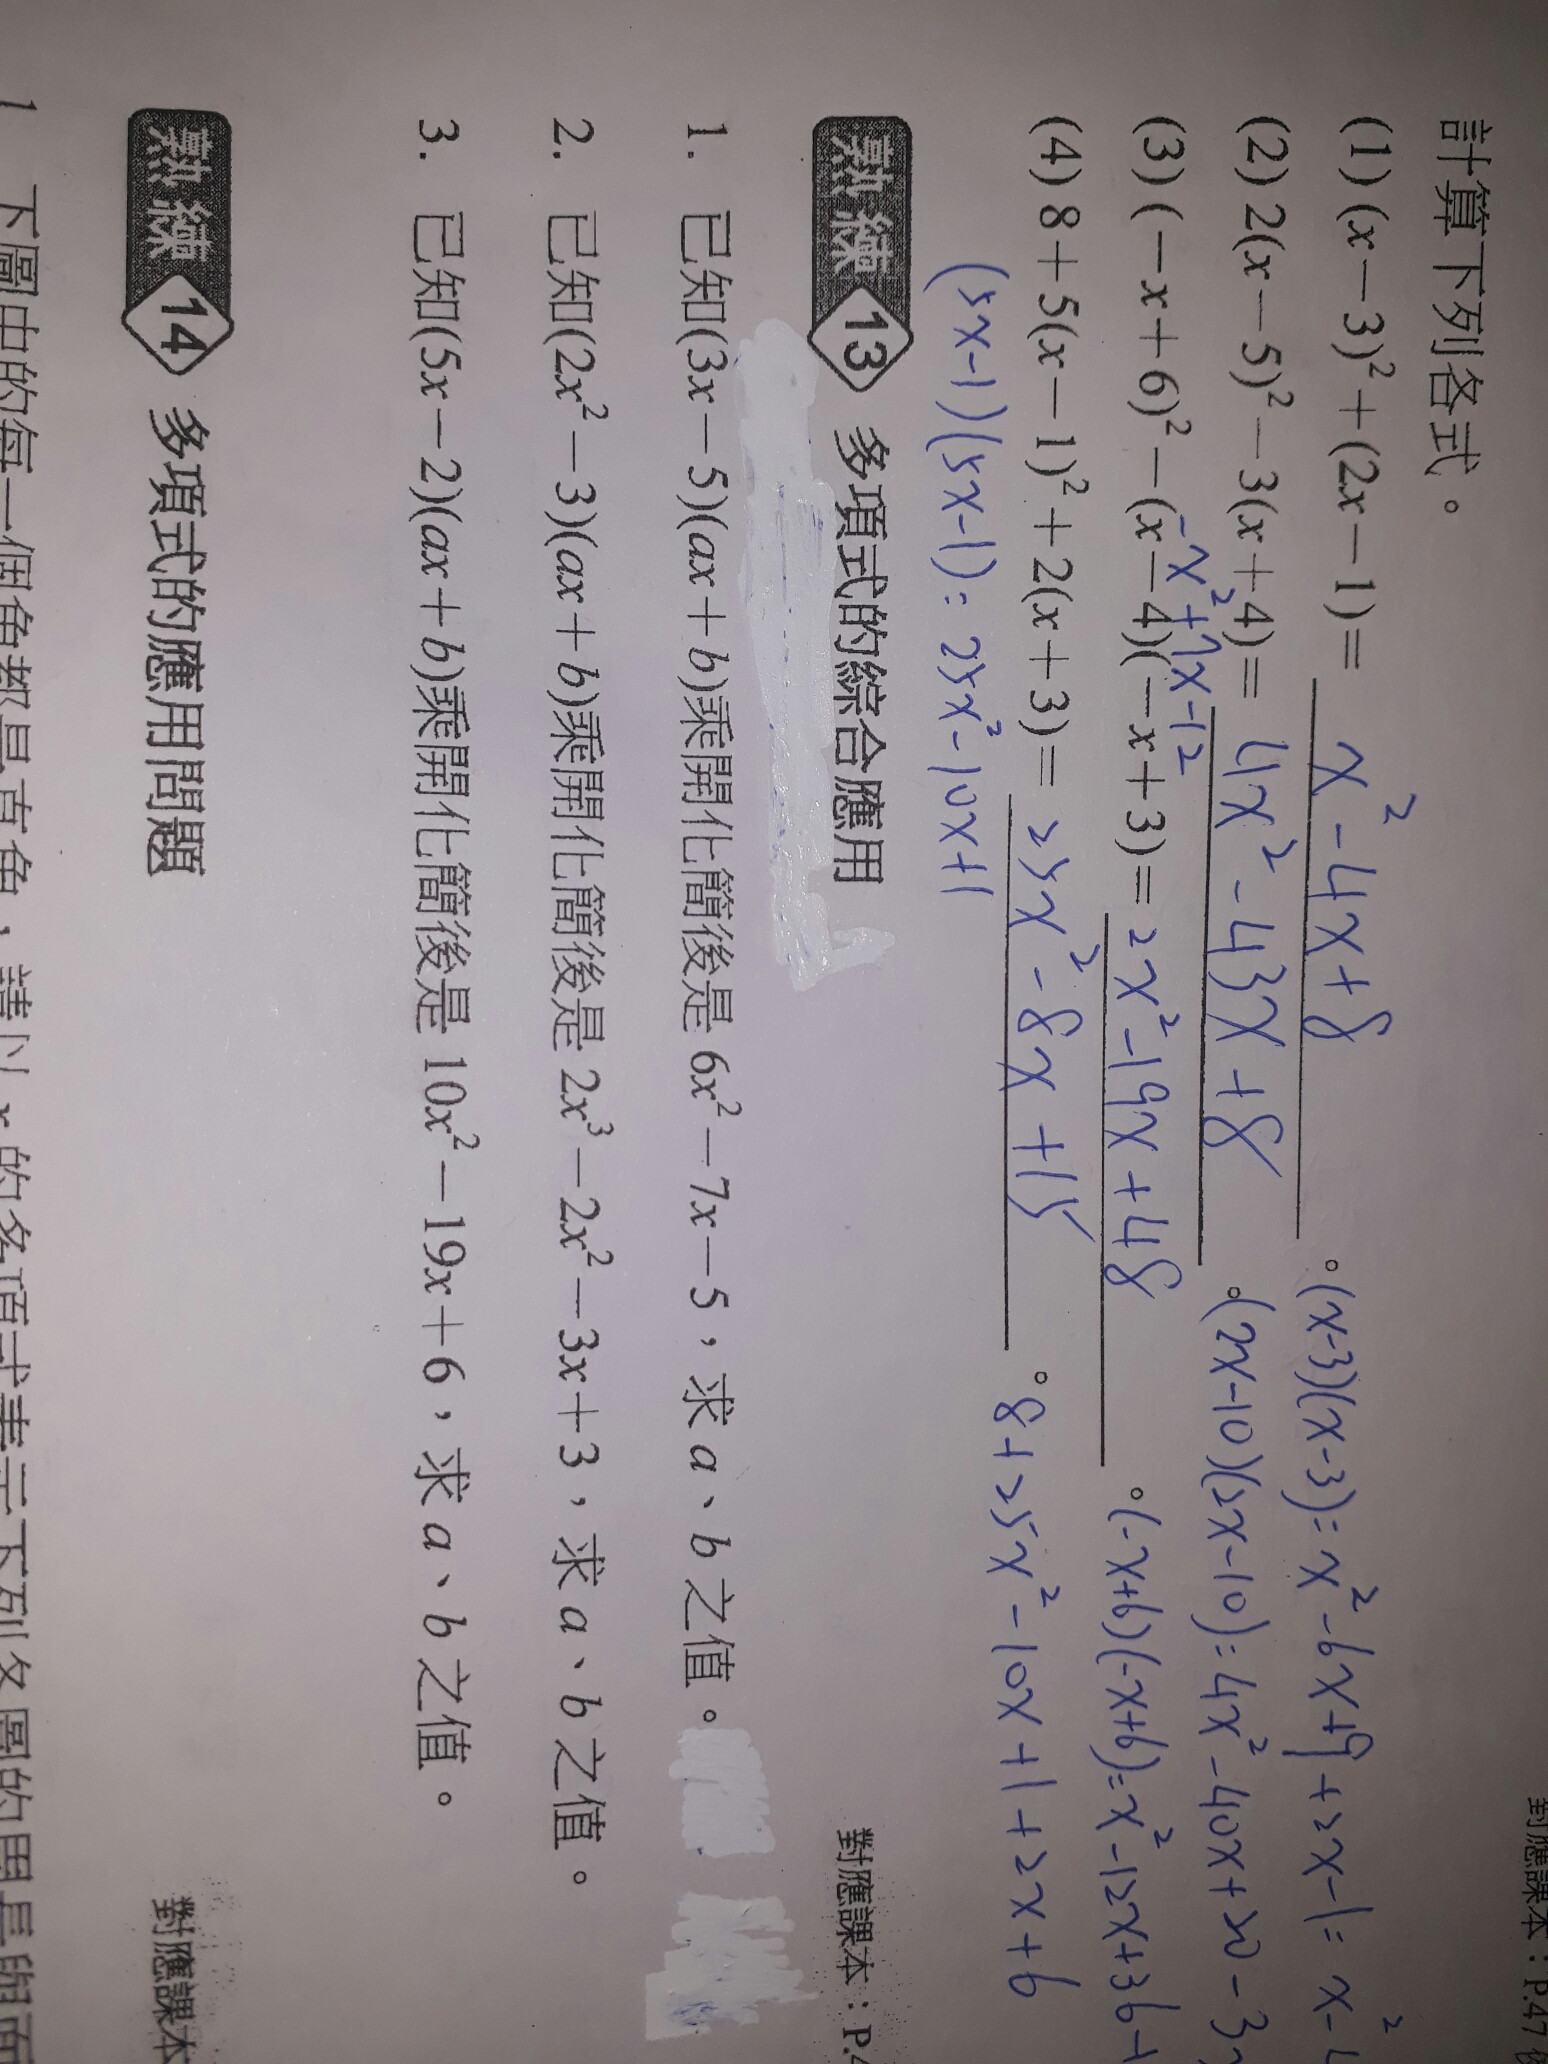 對應課本：P.47
計算下列各式。
(1) (x－3)²＋(2x－1)＝ x²-4x+8 。(x-3)(x-3)=x²-6x+9+2x-1= x²-4
(2) 2(x－5)²－3(x＋4)＝ 4x²-43x+8 。(2x-10)(2x-10)=4x²-40x+20-3
-x²+7x-12
(3) (－x＋6)²－(x－4)(－x＋3)＝ 2x²-19x+48 。(-x+6)(-x+6)=x²-12x+36+
(4) 8＋5(x－1)²＋2(x＋3)＝ 25x²-8x+15 。8+25x²-10x+1+2x+6
(5x-1)(5x-1)=25x²-10x+1
熟練 13 多項式的綜合應用 對應課本：P.4
1. 已知(3x－5)(ax＋b)乘開化簡後是 6x²－7x－5，求 a、b 之值。
2. 已知(2x²－3)(ax＋b)乘開化簡後是 2x³－2x²－3x＋3，求 a、b 之值。
3. 已知(5x－2)(ax＋b)乘開化簡後是 10x²－19x＋6，求 a、b 之值。
熟練 14 多項式的應用問題 對應課本
1 下圖中的每一個角都是直角，請以 x 的多項式表示下列各圖的周長與面